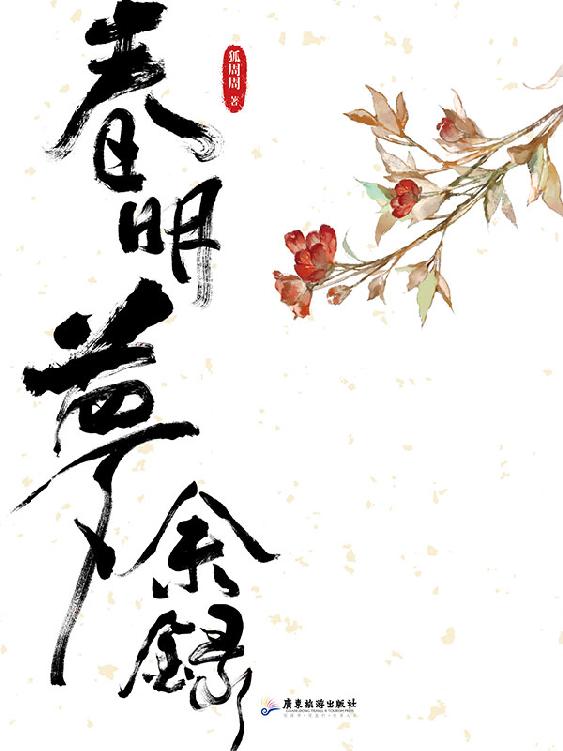 春明夢余録
狐周周 著
廣東旅游出版社
GUANGDONG TRAVEL & TOURISM PRESS